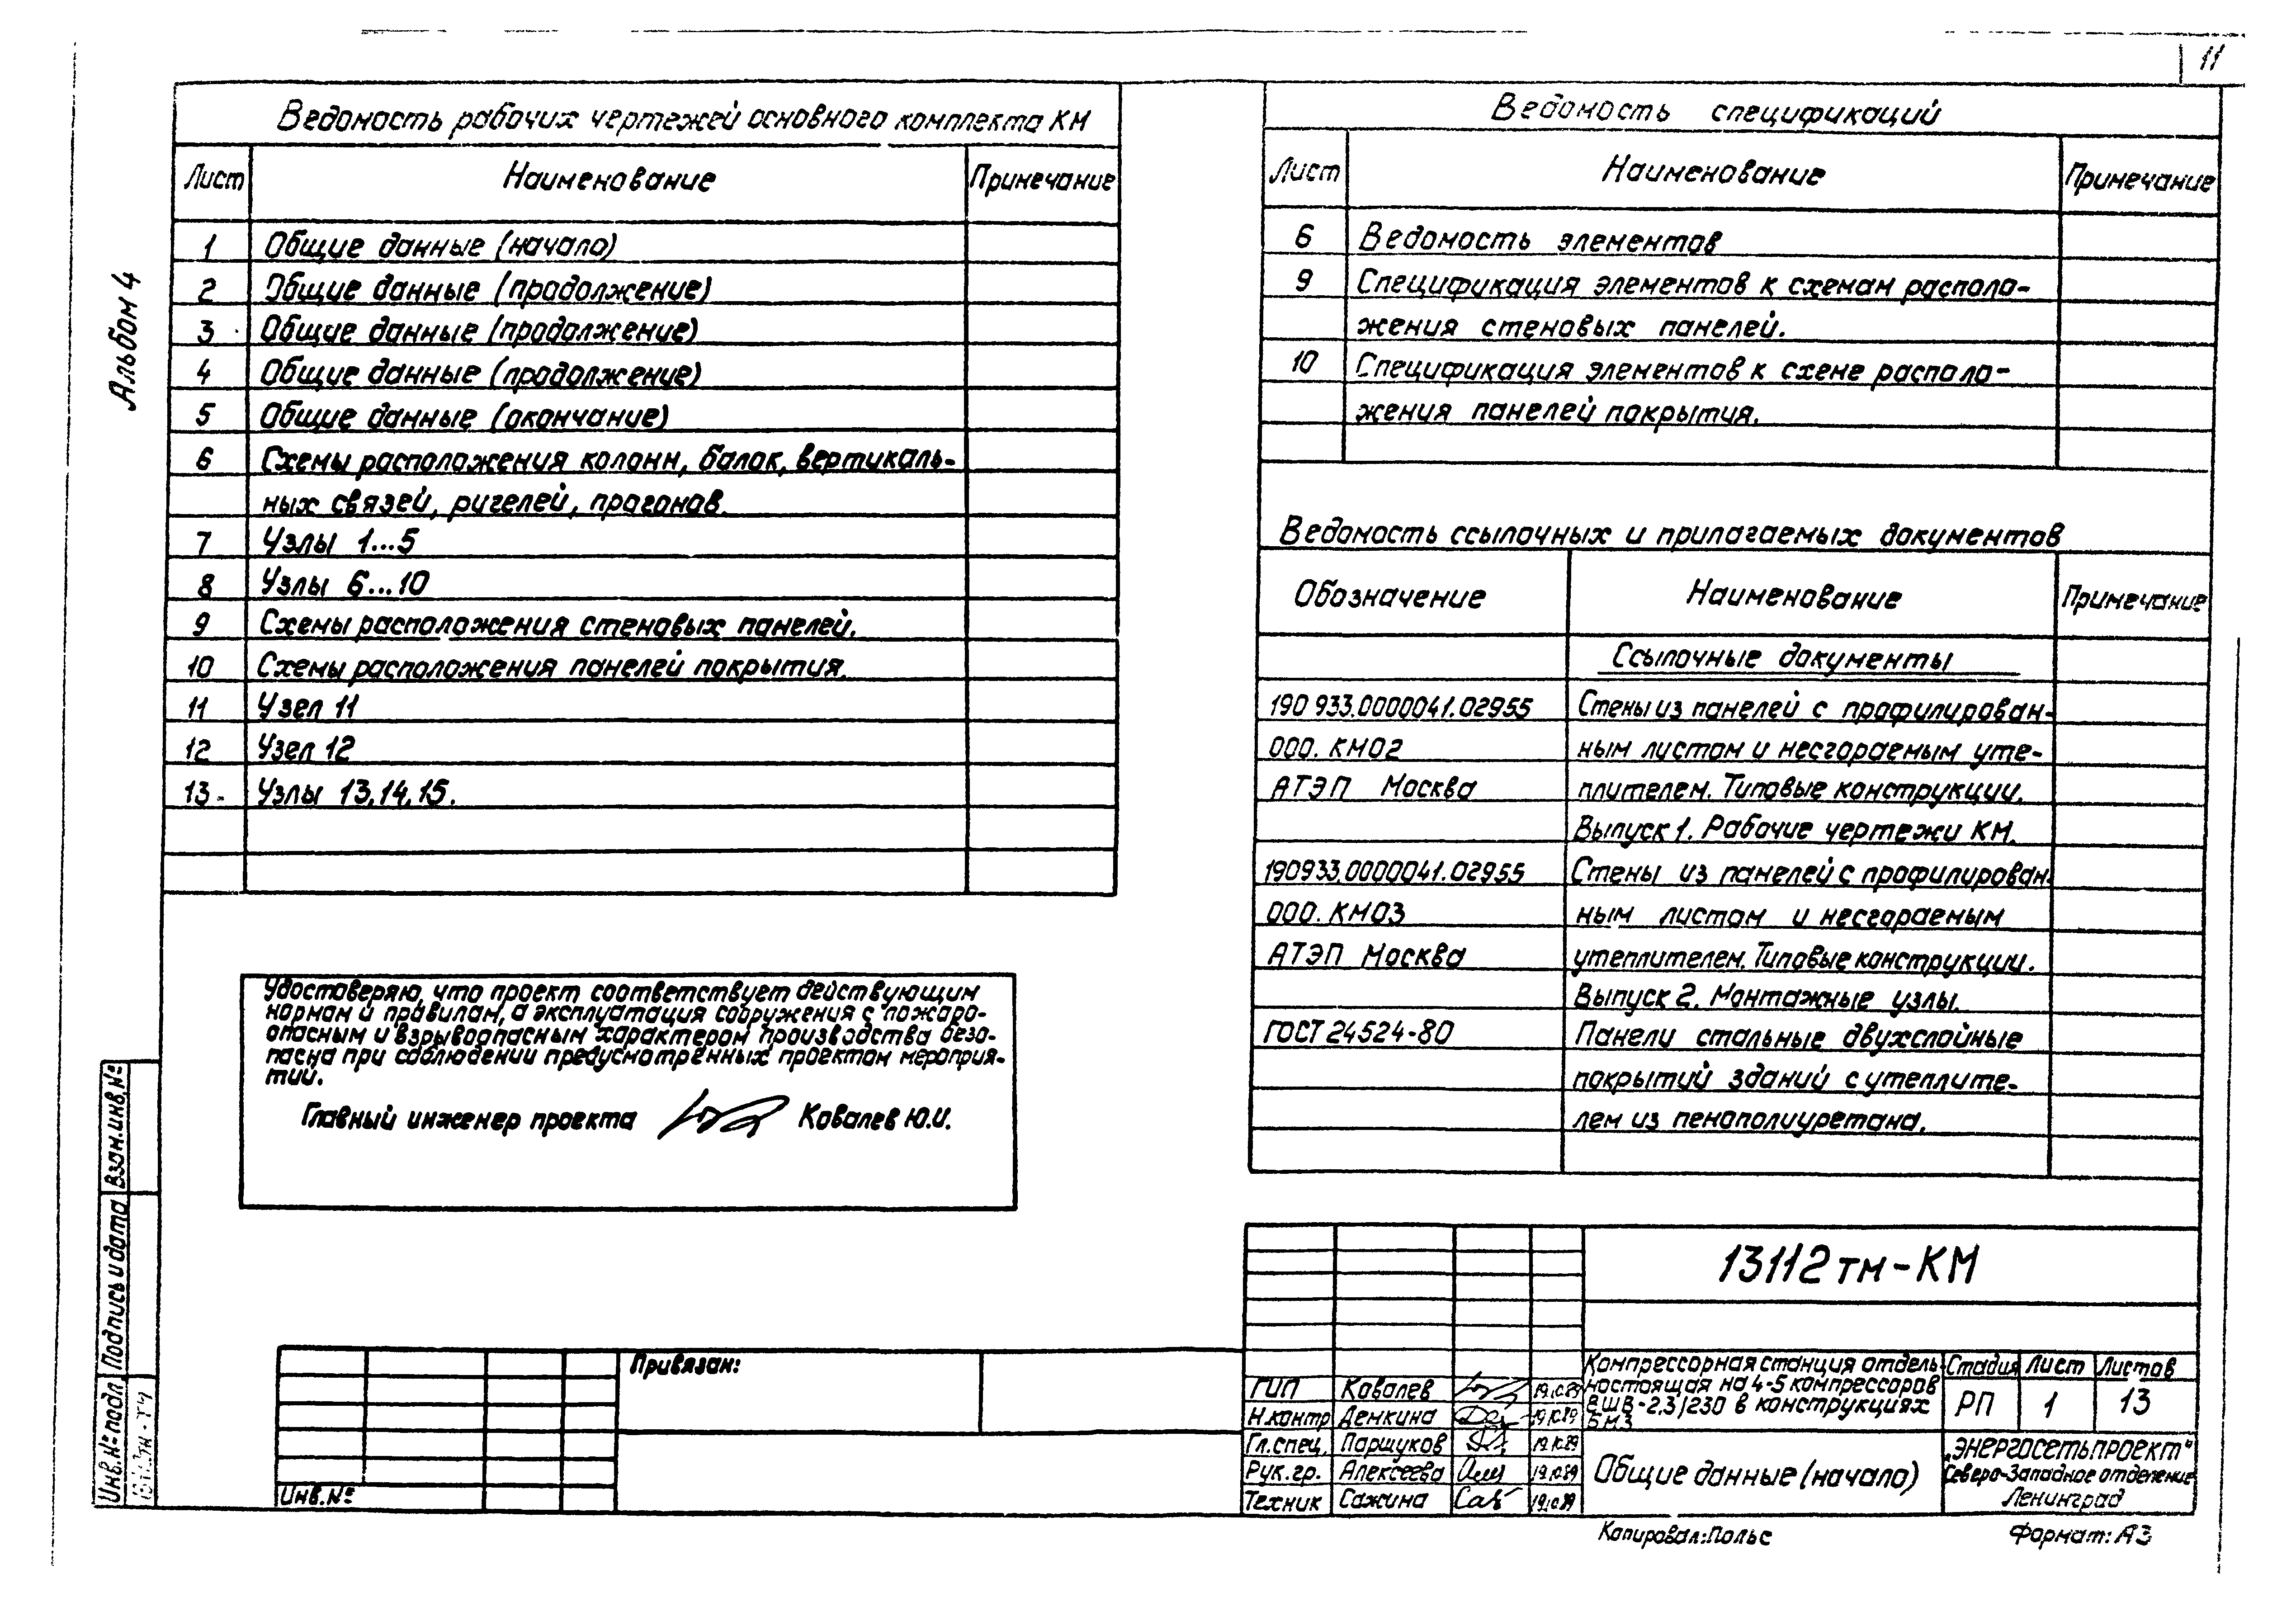 11
Альбом 4
Ведомость рабочих чертежей основного комплекта КМ
Лист Наименование Примечание
1 Общие данные (начало)
2 Общие данные (продолжение)
3 Общие данные (продолжение)
4 Общие данные (продолжение)
5 Общие данные (окончание)
6 Схемы расположения колонн, балок, вертикаль-
ных связей, ригелей, прогонов.
7 Узлы 1...5
8 Узлы 6...10
9 Схемы расположения стеновых панелей.
10 Схемы расположения панелей покрытия.
11 Узел 11
12 Узел 12
13 Узлы 13,14,15.
Удостоверяю, что проект соответствует действующим
нормам и правилам, а эксплуатация сооружения с пожаро-
опасным и взрывоопасным характером производства безо-
пасна при соблюдении предусмотренных проектом мероприя-
тий.
Главный инженер проекта Ковалев Ю.И.
Ведомость спецификаций
Лист Наименование Примечание
6 Ведомость элементов
9 Спецификация элементов к схемам располо-
жения стеновых панелей.
10 Спецификация элементов к схеме располо-
жения панелей покрытия.
Ведомость ссылочных и прилагаемых документов
Обозначение Наименование Примечание
Ссылочные документы
190 933.0000041.02955 Стены из панелей с профилирован-
000.КМ02 ным листом и несгораемым уте-
АТЭП Москва плителем. Типовые конструкции.
Выпуск 1. Рабочие чертежи КМ.
190933.0000041.02955 Стены из панелей с профилирован-
000.КМ03 ным листом и несгораемым
АТЭП Москва утеплителем. Типовые конструкции.
Выпуск 2. Монтажные узлы.
ГОСТ 24524-80 Панели стальные двухслойные
покрытий зданий с утеплите-
лем из пенополиуретана.
Взам.инв.№
Подпись и дата
Инв.№подл.
Привязан:
Инв.№
13112тм-КМ
Компрессорная станция отдель-
ностоящая на 4-5 компрессоров
ВШВ-2.3/230 в конструкциях
БМЗ
Стадия Лист Листов
РП 1 13
ГИП Ковалев 19.10.89
Н.контр Демкина 19.10.89
Гл.спец. Паршуков 19.10.89
Рук.гр. Алексеева 19.10.89
Техник Сажина 19.10.89
Общие данные (начало)
„Энергосетьпроект“
Северо-Западное отделение
Ленинград
Копировал: Польс
Формат: А3